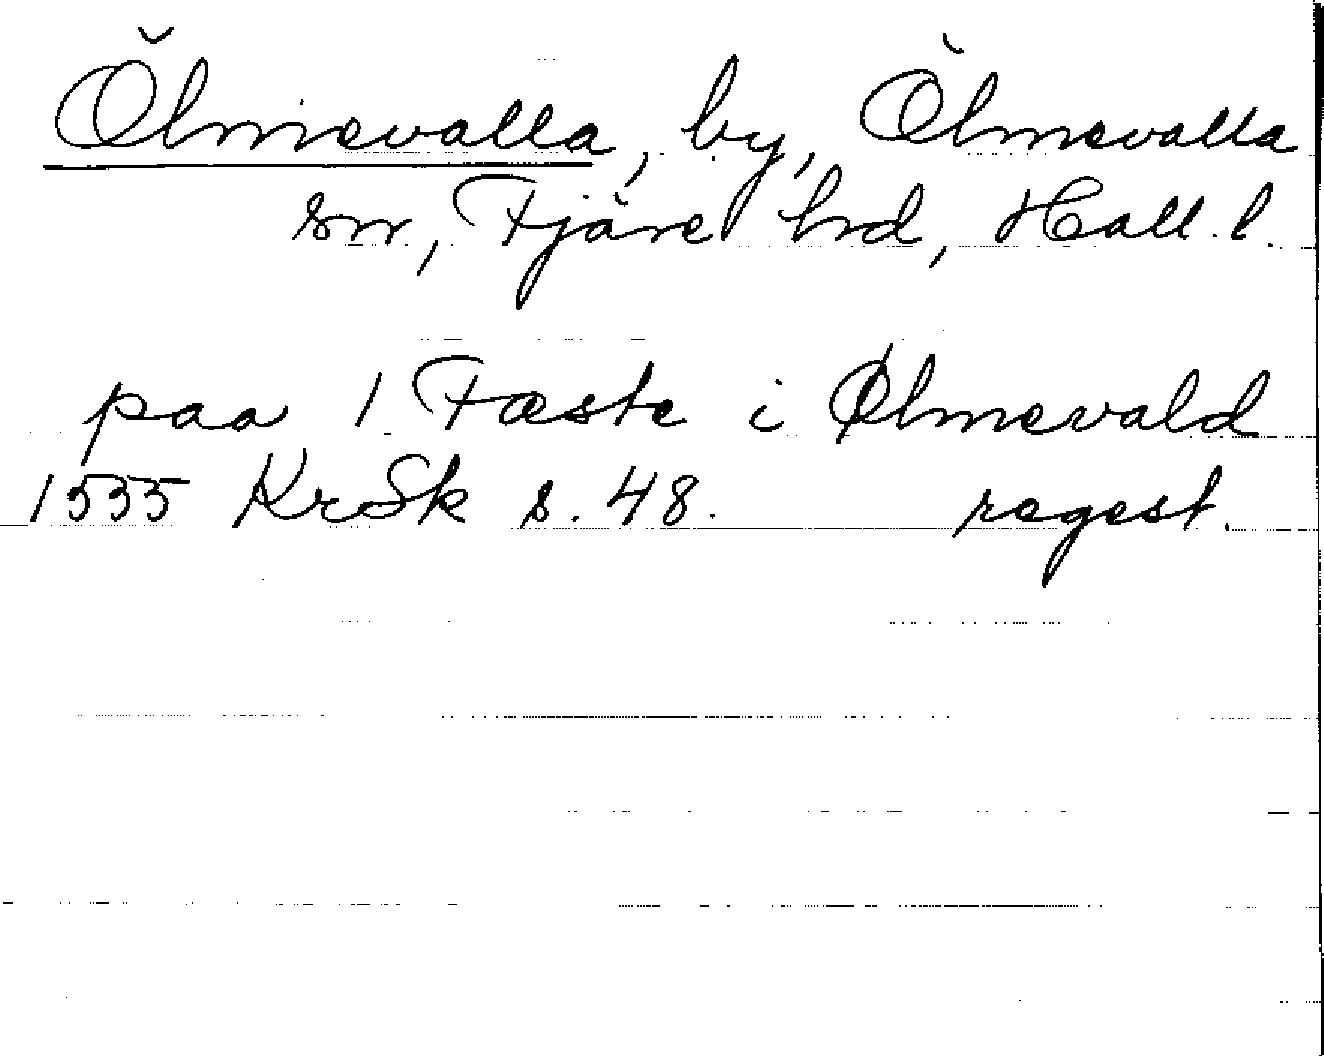 Ölmevalla, by, Ölmevalla
sn, Fjäre hd, Hall. l.
paa 1 Fæste i Ølmevald
1535 KrSk s. 48. regest.